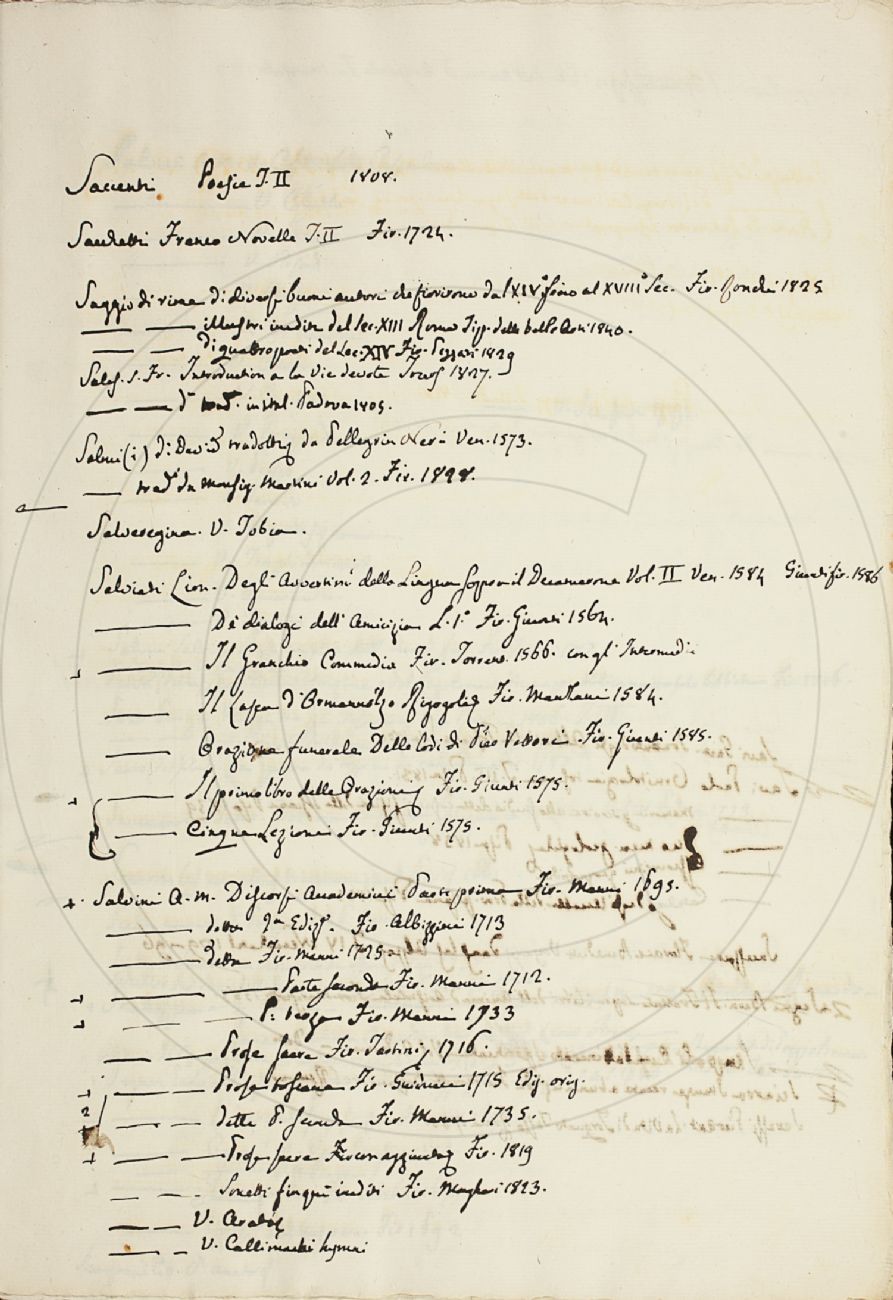 Saccenti Poesie T. II 1808.
Sacchetti Franco Novelle T. II Fir. 1724.
Saggio di rime di diversi buoni autori che fiorirono dal XIV° fino al XVIII° Sec. Fir. Ronchi 1825
— — illustri inedite del sec. XIII Roma Tip. delle belle Arti 1840.
— — di quattro poeti del Sec. XIV Fir. Pezzati 1829
Sales. S. Fr. Introduction a la Vie devote 1827.
— — d° trad. in ital. Padova 1805.
Salmi (i) di David tradotti da Pellegrin Neri Ven. 1573.
— trad. da Monsig. Martini Vol. 2. Fir.
Salveregina. V. Tobia.
Salviati Lion. Degli Avvertimi della Lingua sopra il Decamerone Vol. II Ven. 1584 Giunti fir. 1586
— De dialogi dell' Amicizia L. 1° Fir. Giunti 1564.
— Il Granchio Commedia Fir. Torrent. 1566. con gl' Intromedi
— Il Lasca d' Ormannozzo Rigogoli Fir. Manzani 1584.
— Orazione funerale Delle lodi di Pier Vettori Fir. Giunti 1585.
— Il primo libro delle Orazioni Fir. Giunti 1575.
— Cinque Lezioni Fir. Giunti 1575.
+ Salvini A. M. Discorsi Accademici Parte prima Fir. Manni 1695.
— detta 2a Ediz. Fir. Albizzini 1713
— detta Fir. Manni 1725
— — Parte seconda Fir. Manni 1712.
— — P. terza Fir. Manni 1733
— — Prose sacre Fir. Tartini 1716.
— — Prose toscane Fir. Guiducci 1715 Ediz. orig.
— — dette P. seconda Fir. Manni 1735.
+ — — Prose sacre con aggiunte Fir. 1819
— — Sonetti finqui inediti Fir. Magheri 1823.
— — V. Arato
— — V. Callimachi hymni